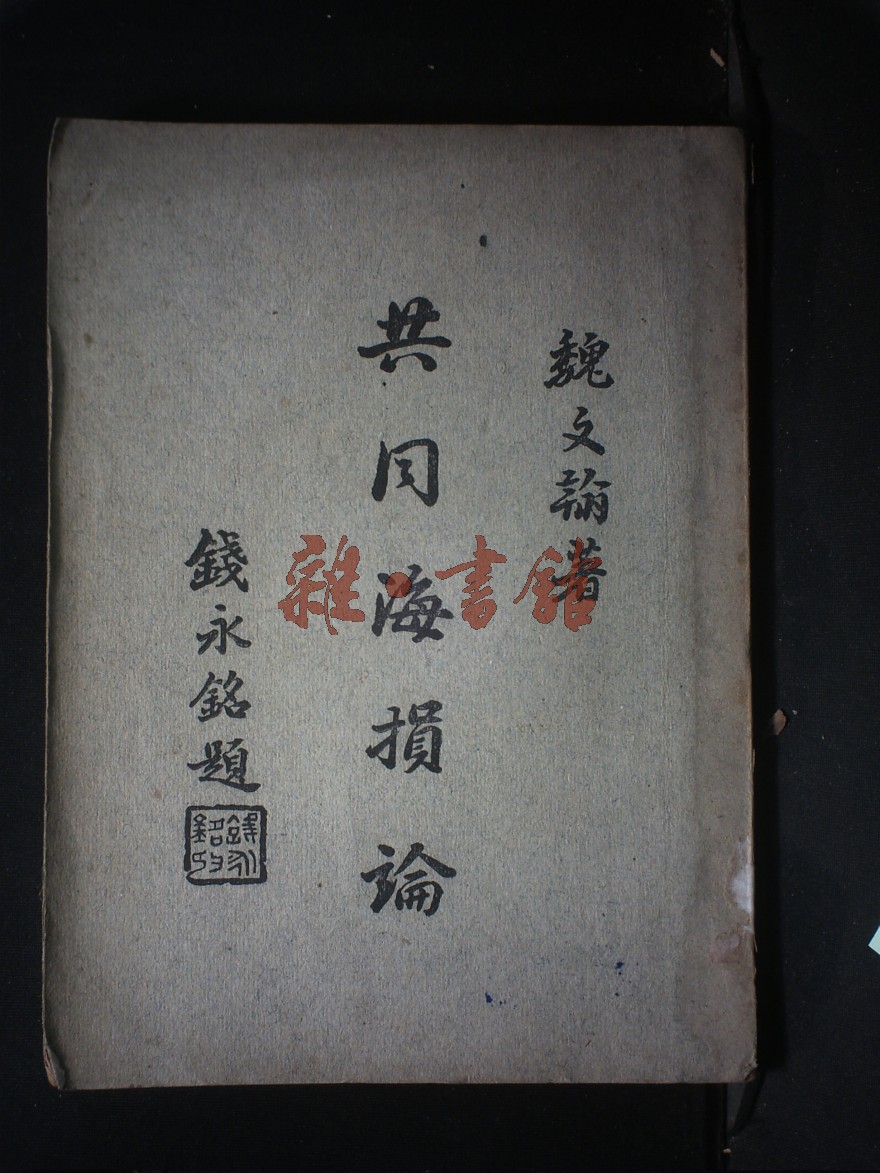 魏文翰著
共同海損論
錢永銘題
雜·書館